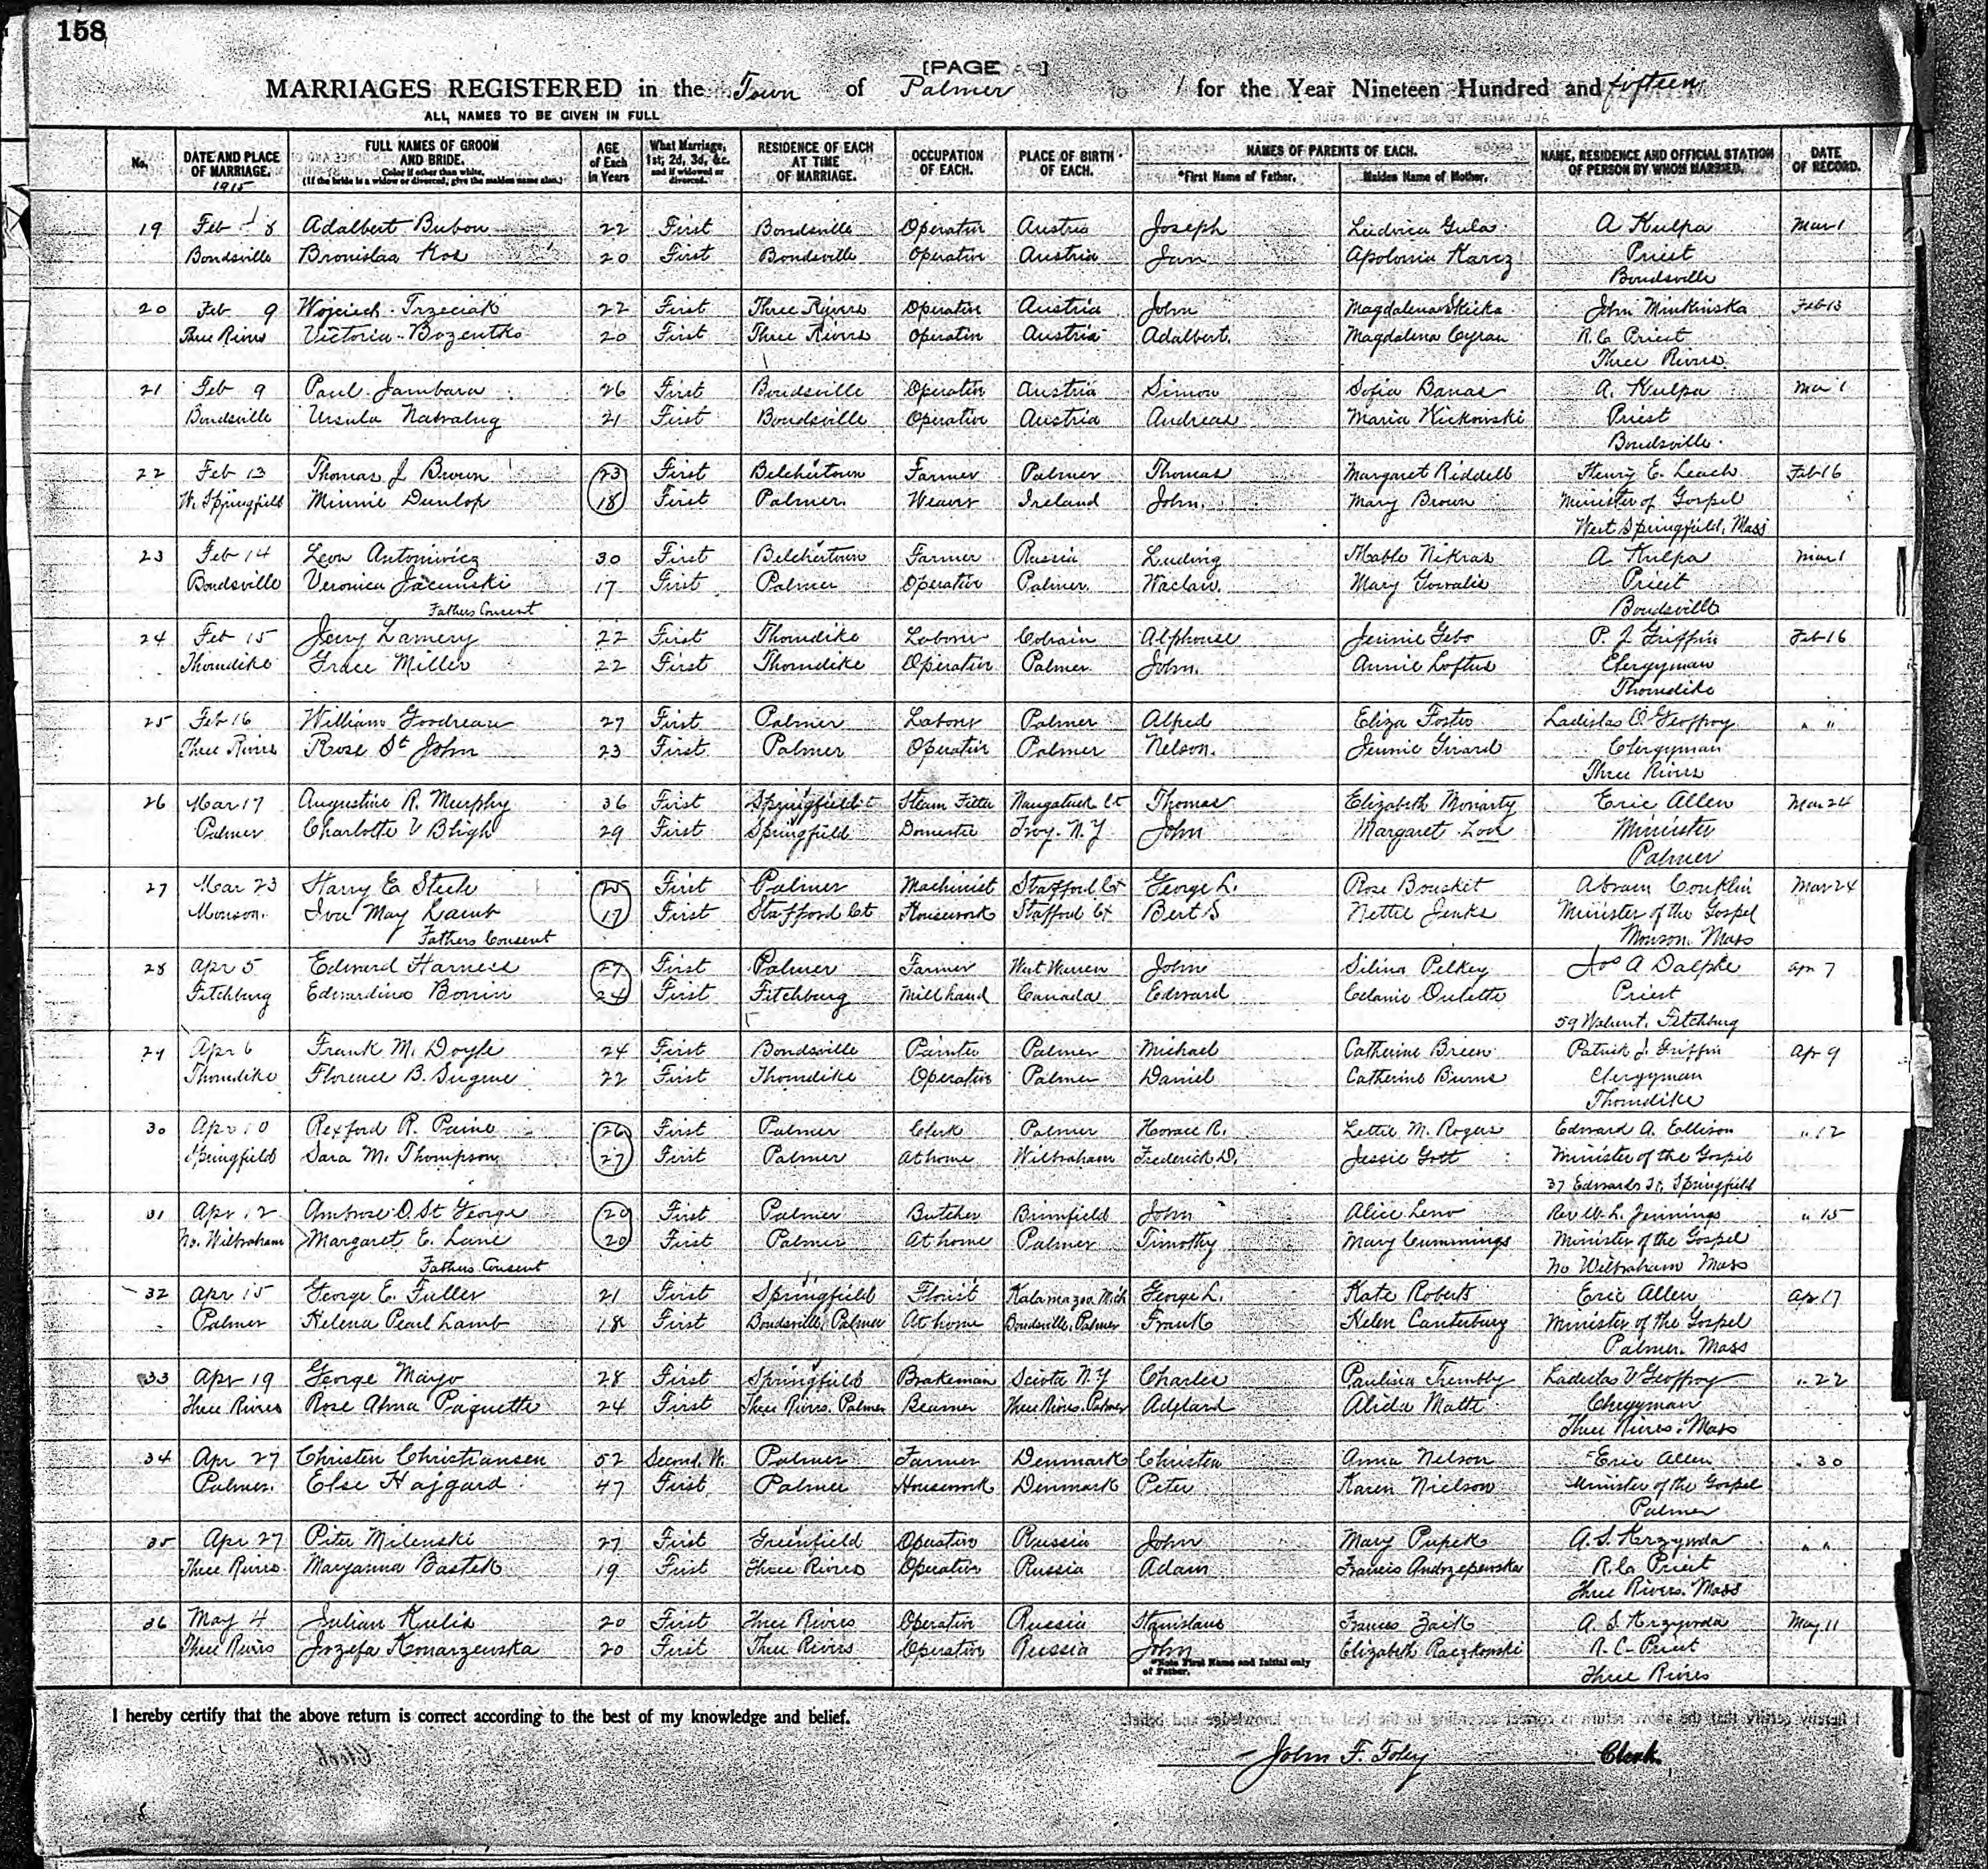 158
[PAGE ]
MARRIAGES REGISTERED in the Town of Palmer for the Year Nineteen Hundred and fifteen
ALL NAMES TO BE GIVEN IN FULL
No. DATE AND PLACE OF MARRIAGE. FULL NAMES OF GROOM AND BRIDE. Color if other than white. (If the bride is a widow or divorced, give the maiden name also.) AGE of Each in Years What Marriage, 1st; 2d, 3d, &c. and if widowed or divorced. RESIDENCE OF EACH AT TIME OF MARRIAGE. OCCUPATION OF EACH. PLACE OF BIRTH OF EACH. NAMES OF PARENTS OF EACH. *First Name of Father. Maiden Name of Mother. NAME, RESIDENCE AND OFFICIAL STATION OF PERSON BY WHOM MARRIED. DATE OF RECORD.
1915
19 Feb 8 Adalbert Bubon 22 First Bondsville Operative Austria Joseph Ludvica Gula A Kulpa Mar 1
Bondsville Bronislaa Kos 20 First Bondsville Operative Austria Jan Apolonia Karcz Priest
Bondsville
20 Feb 9 Wojciech Trzeciak 22 First Three Rivers Operative Austria John Magdalena Skicka John Feb 13
Three Rivers Victoria 20 First Three Rivers Operative Austria Adalbert. Magdalena Cyran R.C. Priest
Three Rivers
21 Feb 9 Paul Jambara 26 First Bondsville Operative Austria Simon Sofia Banas A. Kulpa Mar 1
Bondsville Ursula 21 First Bondsville Operative Austria Andreas Maria Kickowski Priest
Bondsville.
22 Feb 13 Thomas J Brown 23 First Belchertown Farmer Palmer Thomas Margaret Riddell Henry E. Leach Feb 16
W. Springfield Minnie Dunlop 18 First Palmer. Weaver Ireland John. Mary Brown Minister of Gospel
West Springfield, Mass
23 Feb 14 Leon Antoniwicz 30 First Belchertown Farmer Russia Ludwig Mable Nikras A Kulpa Mar 1
Bondsville Veronica Jacenski 17 First Palmer Operative Palmer Waclaw. Mary Priest
Fathers Consent Bondsville
24 Feb 15 Jerry Lamery 22 First Thorndike Laborer Colrain Alphonse Jennie Gebo P. J. Griffin Feb 16
Thorndike Grace Miller 22 First Thorndike Operative Palmer John. Annie Loftus Clergyman
Thorndike
25 Feb 16 William Goodreau 27 First Palmer Laborer Palmer Alfred Eliza Foster Ladislas O. Geoffroy " "
Three Rivers Rose St John 23 First Palmer Operative Palmer Nelson. Jennie Girard Clergyman
Three Rivers
26 Mar 17 Augustine R. Murphy 36 First Springfield Steam Fitter Naugatuck Ct Thomas Elizabeth Moriarty Eric Allen Mar 24
Palmer Charlotte V Bligh 29 First Springfield Domestic Troy. N.Y John Margaret Minister
Palmer
27 Mar 23 Harry E. Steele 25 First Palmer Machinist Stafford Ct George L. Rose Bousket Abram Conklin Mar 24
Monson. Iva May Lamb 17 First Stafford Ct Housework Stafford Ct Bert S Nettie Jenks Minister of the Gospel
Fathers Consent Monson. Mass
28 Apr 5 Edward Harness 27 First Palmer Farmer West Warren John Silina Pelkey Jos A Dalpke Apr 7
Fitchburg Edwardina Bonin 24 First Fitchburg Millhand Canada Edward Celanie Oulette Priest
59 Walnut. Fitchburg
29 Apr 6 Frank M. Doyle 24 First Bondsville Painter Palmer Michael Catherine Breen Patrick J. Griffin Apr 9
Thorndike Florence B. Sugrue 22 First Thorndike Operative Palmer Daniel Catherine Burns Clergyman
Thorndike
30 Apr 10 Rexford R. Paine 26 First Palmer Clerk Palmer Horace R. Lettie M. Rogers Edward A. Ellison " 12
Springfield Sara M. Thompson 27 First Palmer At home Wilbraham Frederick D. Jessie Gott Minister of the Gospel
37 Edwards St, Springfield
31 Apr 12 Ambrose O. St George 20 First Palmer Butcher Brimfield John Alice Leno Rev W. L. Jennings " 15
No. Wilbraham Margaret E. Lane 20 First Palmer At home Palmer Timothy Mary Cummings Minister of the Gospel
Fathers Consent No Wilbraham Mass
32 Apr 15 George E. Fuller 21 First Springfield Florist Kalamazoo Mich George L. Kate Roberts Eric Allen Apr 17
Palmer Helena Pearl Lamb 18 First Bondsville, Palmer At home Bondsville, Palmer Frank Helen Canterbury Minister of the Gospel
Palmer. Mass
33 Apr 19 George Mayo 28 First Springfield Brakeman Sciota N.Y Charles Paulina Trembly Ladislas V Geoffroy " 22
Three Rivers Rose Alma Paquette 24 First Three Rivers. Palmer Beamer Three Rivers. Palmer Adelard Alida Matte Clergyman
Three Rivers. Mass
34 Apr 27 Christen Christiansen 52 Second. W. Palmer Farmer Denmark Christen Anna Nelson Eric Allen " 30
Palmer. Else Hajgard 47 First Palmer Housework Denmark Peter Karen Nielson Minister of the Gospel
Palmer
35 Apr 27 Peter Milenski 27 First Greenfield Operative Russia John Mary Pupek A. S. Krzywda " "
Three Rivers Maryanna Bastek 19 First Three Rivers Operative Russia Adam Francis Andrzepewska R.C. Priest
Three Rivers. Mass
36 May 4 Julian Kulis 20 First Three Rivers Operative Russia Stanislaus Frances Zaik A. S. Krzywda May 11
Three Rivers Jozefa Konarzewska 20 First Three Rivers Operative Russia John Elizabeth Raczkowski R. C. Priest
*Note First Name and Initial only of Father. Three Rivers
I hereby certify that the above return is correct according to the best of my knowledge and belief.
John F. Foley Clerk.